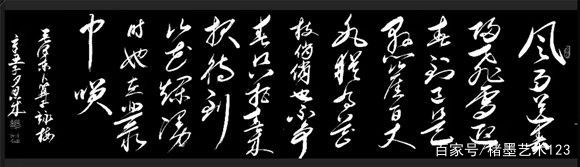 风雨送春
归飞雪迎
春到已是
悬崖百丈
冰犹有花
枝俏俏也不争
春只把春来
报待到
山花烂漫
时她在丛
中笑
毛泽东卜算子咏梅
辛丑
百家号/楮墨艺术123